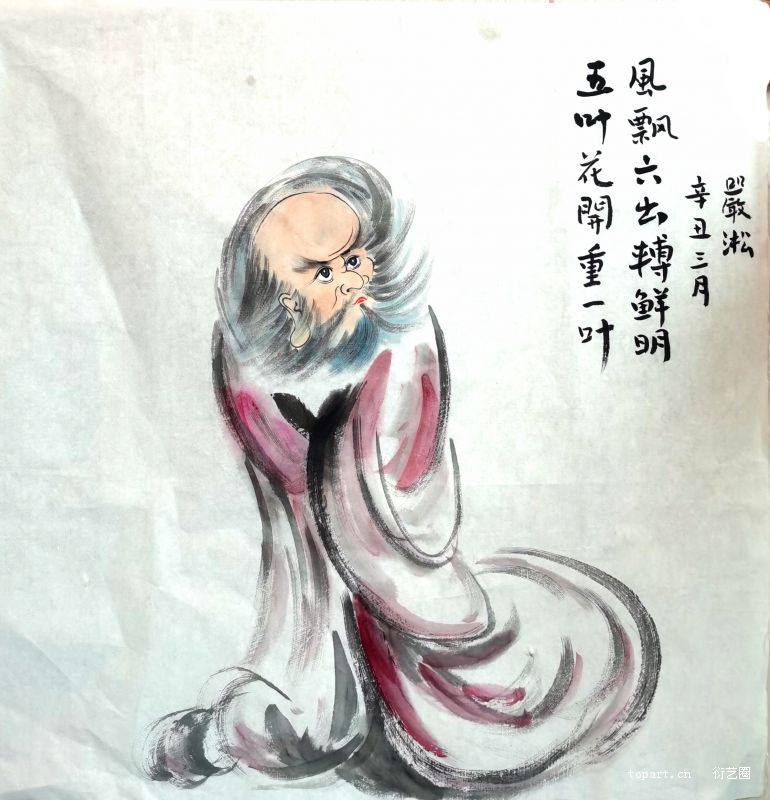 五叶花開重一叶
風飘六出轉鮮明
辛丑三月
嚴淞
topart.cn 衍艺圈